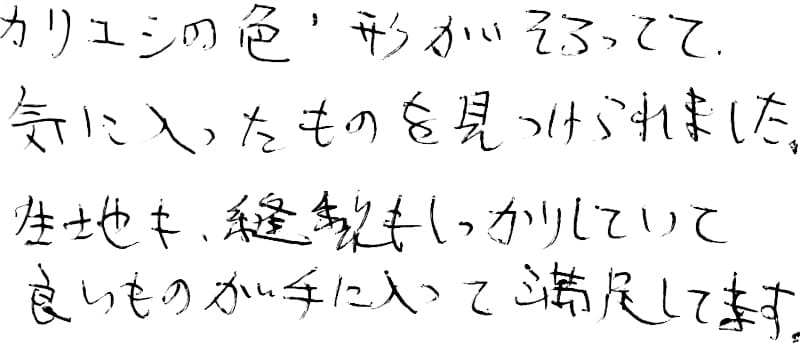 カリユシの色、形がそろってて、
気に入ったものを見つけられました。
生地も、縫製もしっかりしていて
良いものが手に入って満足してます。